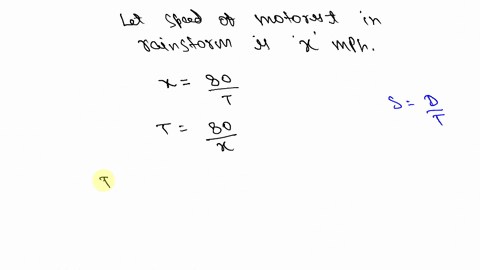 Let speed of motorest in
rainstorm is 'x' mph.
x = 80/T
S = D/T
T = 80/x
T